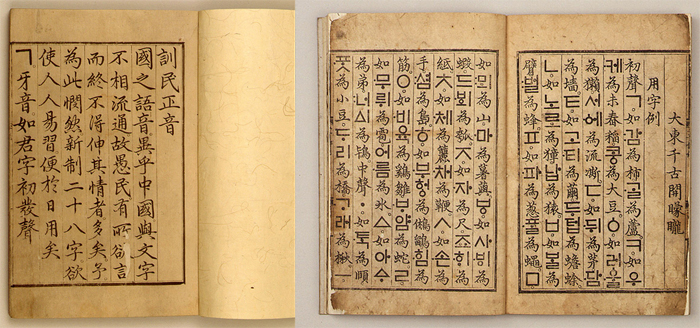 訓民正音
國之語音異乎中國與文字
不相流通故愚民有所欲言
而終不得伸其情者多矣予
為此憫然新制二十八字欲
使人人易習便於日用矣
ㄱ牙音如君字初發聲
大東千古開矇矓
用字例
初聲ㄱ如감為柿ᄀᆞᆯ為蘆ㅋ如우
케為未舂稻콩為大豆ㆁ如러울
為獺서에為流凘ㄷ如뒤為茅담
為墻ㅌ如고티為繭두텁為蟾蜍
ㄴ如노로為獐납為猿ㅂ如ᄇᆞᆯ為
臂벌為蜂ㅍ如파為葱ᄑᆞᆯ為蠅ㅁ
如뫼為山마為薯藇ㅸ如사ᄫᅵ為
蝦드ᄫᅴ為瓠ㅈ如자為尺죠ᄒᆡ為
紙ㅊ如체為籭채為鞭ㅅ如손為
手셤為島ㅎ如부헝為鵂鶹힘為
筋ㅇ如비육為鷄雛ᄇᆞ얌為蛇ㄹ
如무뤼為雹어름為氷ㅿ如아ᅀᆞ
為弟너ᅀᅵ為鴇中聲ㆍ如ᄐᆞᆨ為頤
ᄑᆞᆺ為小豆ᄃᆞ리為橋ᄀᆞ래為楸ㅡ